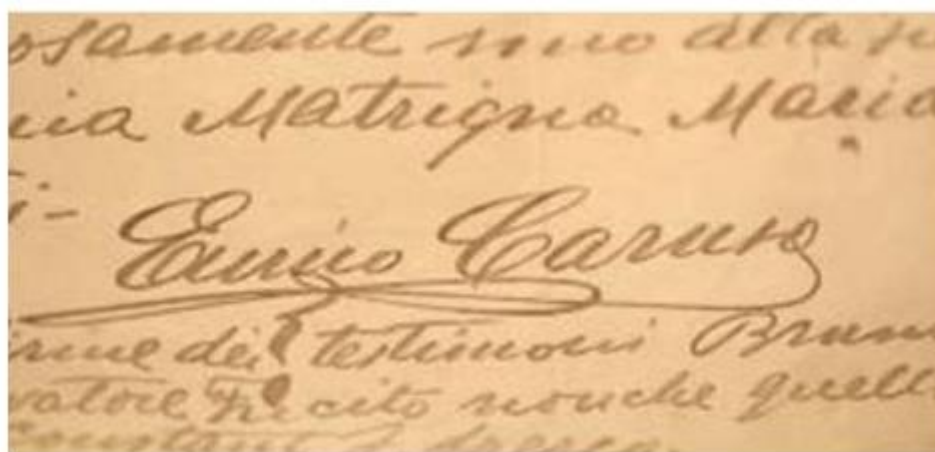 osamente sino alla
mia Matrigna Maria
ti-
Enrico Caruso
firme dei testimoni Brun
vatore Fucito nonche quell